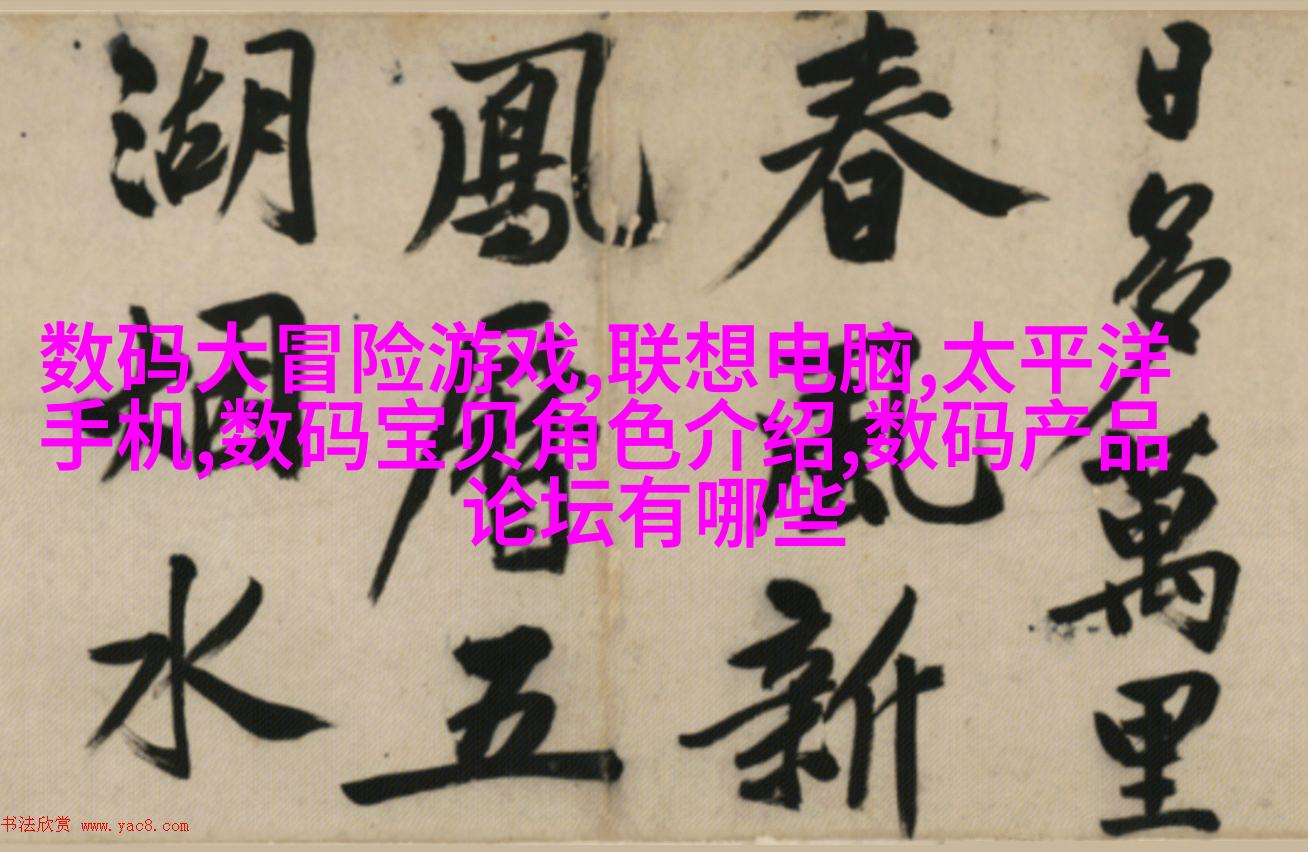 日名萬里
春風新
鳳曆五
湖水
数码大冒险游戏,联想电脑,太平洋
手机,数码宝贝角色介绍,数码产品
论坛有哪些
书法欣赏 www.yac8.com